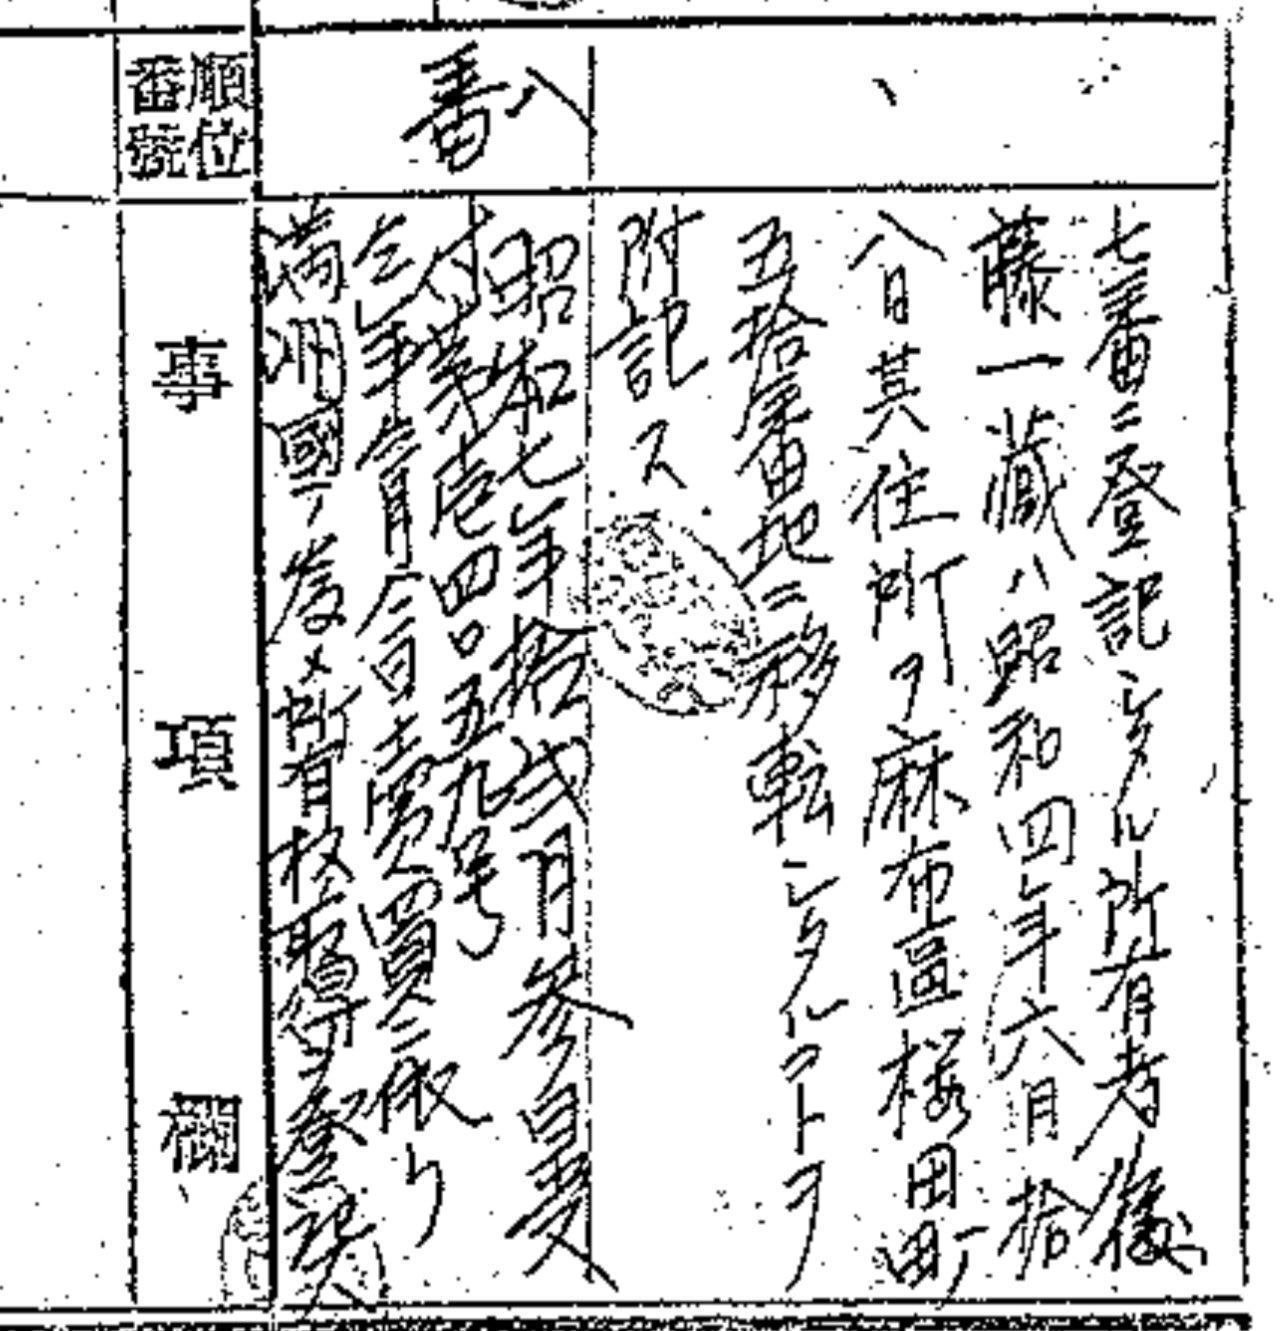 七番ニ登記シタル所有者後
藤一藏ハ昭和四年六月拾
八日其住所ヲ麻布區櫻田町
五拾番地ニ移転シタルコトヲ
附記ス
八番
昭和七年拾弐月参日受
付第壱四〇五九号
仝年仝月仝日売買ニ依り
満洲國ノ為メ所有権取得ヲ登記ス
順位番號
事項欄